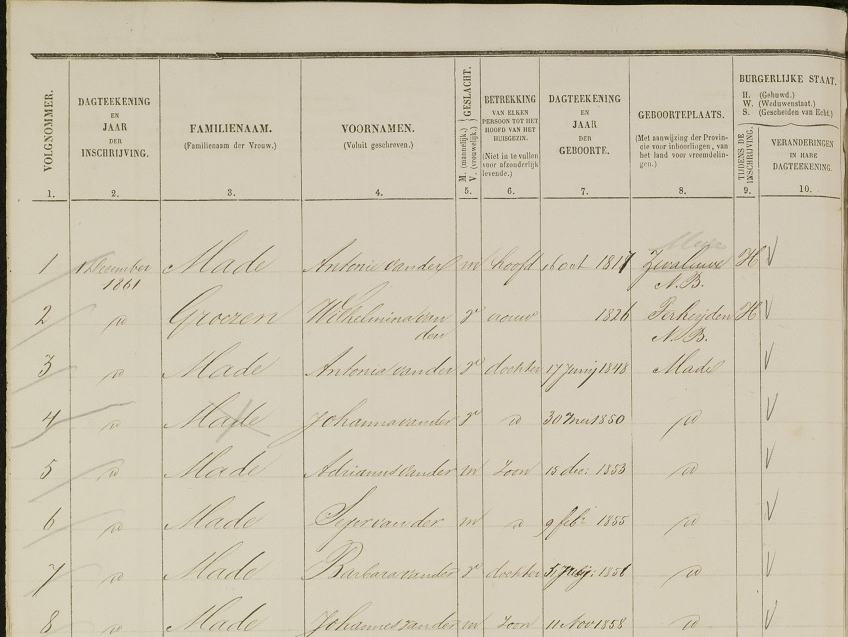 VOLGNOMMER. DAGTEEKENING EN JAAR DER INSCHRIJVING. FAMILIENAAM. (Familienaam der Vrouw.) VOORNAMEN. (Voluit geschreven.) GESLACHT. M. (mannelijk.) V. (vrouwelijk.) BETREKKING VAN ELKEN PERSOON TOT HET HOOFD VAN HET HUISGEZIN. (Niet in te vullen voor afzonderlijk levende.) DAGTEEKENING EN JAAR DER GEBOORTE. GEBOORTEPLAATS. (Met aanwijzing der Provincie voor inboorlingen, van het land voor vreemdelingen.) BURGERLIJKE STAAT. H. (Gehuwd.) W. (Weduwenstaat.) S. (Gescheiden van Echt.) TIJDENS DE INSCHRIJVING. VERANDERINGEN IN HARE DAGTEEKENING.
1. 2. 3. 4. 5. 6. 7. 8. 9. 10.
1 1 December 1861 Made Antonie van der m hoofd 1817 N.B. H
2 Groezen Wilhelmina van den vr vrouw 1826 Terheijden N.B. H
3 Made Antonia van der vr dochter 17 Junij 1848 Made
4 Made Johanna van der vr 30 1850
5 Made Adrianus van der m zoon 15 dec: 1853
6 Made van der m 9 feb: 1855
7 Made Barbara van der vr dochter 1856
8 Made Johannes van der m zoon 11 Nov 1858